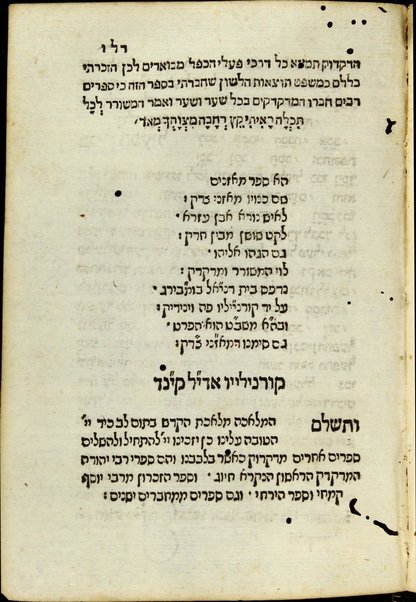 רלו
הדקדוק תמצא כל דרכי פעלי הכפל מבוארים לכן הזכרתי
כללם כמשפט הוצאות הלשון שחברתי בספר הזה כי ספרים
רבים חברו המדקדקים בכל שער ושער ואמר המשורר לְכָל
תִּכְלָה רָאִיתִי קֵץ רְחָבָה מִצְוָתְךָ מְאֹד׳
הא ספר מאזנים
שם כנויו מאזני צדק׃
לאיש נורא אבן עזרא ׳
לקט שושן מבין חדק׃
גם הגהו אליהו ׳
לוי המשורר ומדקדק׃
נדפס בית דניאל בומבירג ׳
על יד קורנילייו פה ויניריק׃
ובה״א משבט הוא הפרט ׳
גם סימנו המאזני צדק׃
קורנילייו אדיל קינד
ותשלם המלאכה מלאכת הקדש בתוס לב כיד יי״
הטובה עלינו כן יזכינו יי״ להתחיל ולהשלים
ספרים אחרים מדקדוק כאשר בלבבנו והם ספרי רבי יהודה
המדקדק הראשון הנקרא חיוג ׳ וספר הזכרון מרבי יוסף
קמחי וספר הירחי ׳ וגם ספרים ממחברים ישנים׃